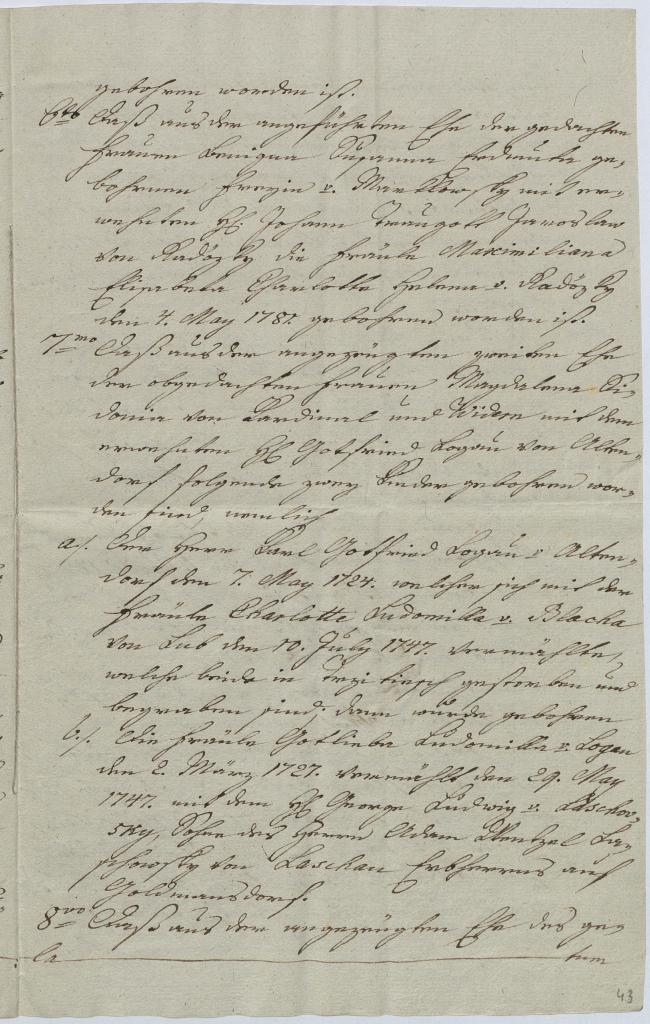 gebohren worden ist.
6to Daß aus der angeführten Ehe der gedachten
Frauen Benigna Susanna Erdmuta ge-
bohrnen Freyin v. Marklowsky mit er-
wehnten H. Johann Traugott Jaroslaw
von Radözky die Fräule Maximiliana
Elisabeta Charlotte Helena v. Radözky
den 4. May 1781. gebohren worden ist.
7mo Daß aus der angezeugten zweiten Ehe
der obgedachten Frauen Magdalena Si-
donia von Kardinal und Widern mit dem
erwehnten H. Gotfried Logau von Alten-
dorf folgende zwey Kinder gebohren wor-
den sind, nemlich
a/. Der Herr Karl Gotfried Logau v Alten-
dorf den 7. May 1724. welcher sich mit der
Fräule Charlotte Ludomilla v. Blacha
von Lub den 10. July 1747. vermählte,
welche beide in gestorben und
begraben sind; dann wurde gebohren
b./. Die Fräule Gotlieba Ludomilla v. Logau
den 2. März 1727. vermählt den 29. May
1747. mit dem H. George Ludwig v. Laschow-
sky, Sohne des Herrn Adam Wentzel La-
schowsky von Laschau Erbherrns auf
Goldmansdorf.
8vo Daß aus der angezeugten Ehe des ge-
la tum
43